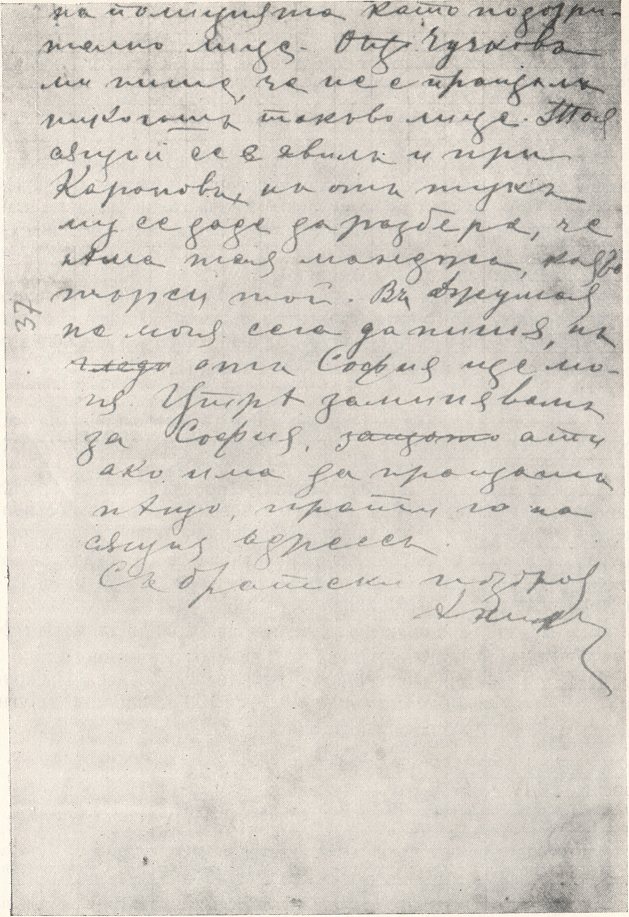 на полицията като подозри-
телно лице. Отъ Чучкова
ми пише, че не е пращалъ
никогашъ таково лице. Тоя
сѫщий се е явилъ и при
Карапова, но отъ тукъ
му се даде да разбере, че
нѣма тая манджа, която
търси той. Въ Джумая
не могя сега да пишя, но
отъ София ще мо-
гя. Утрѣ заминявамъ
за София, защото ати
ако има да пращаши
нѣщо, прати го на
сѫщия адресъ.
Съ братски поздрав
37